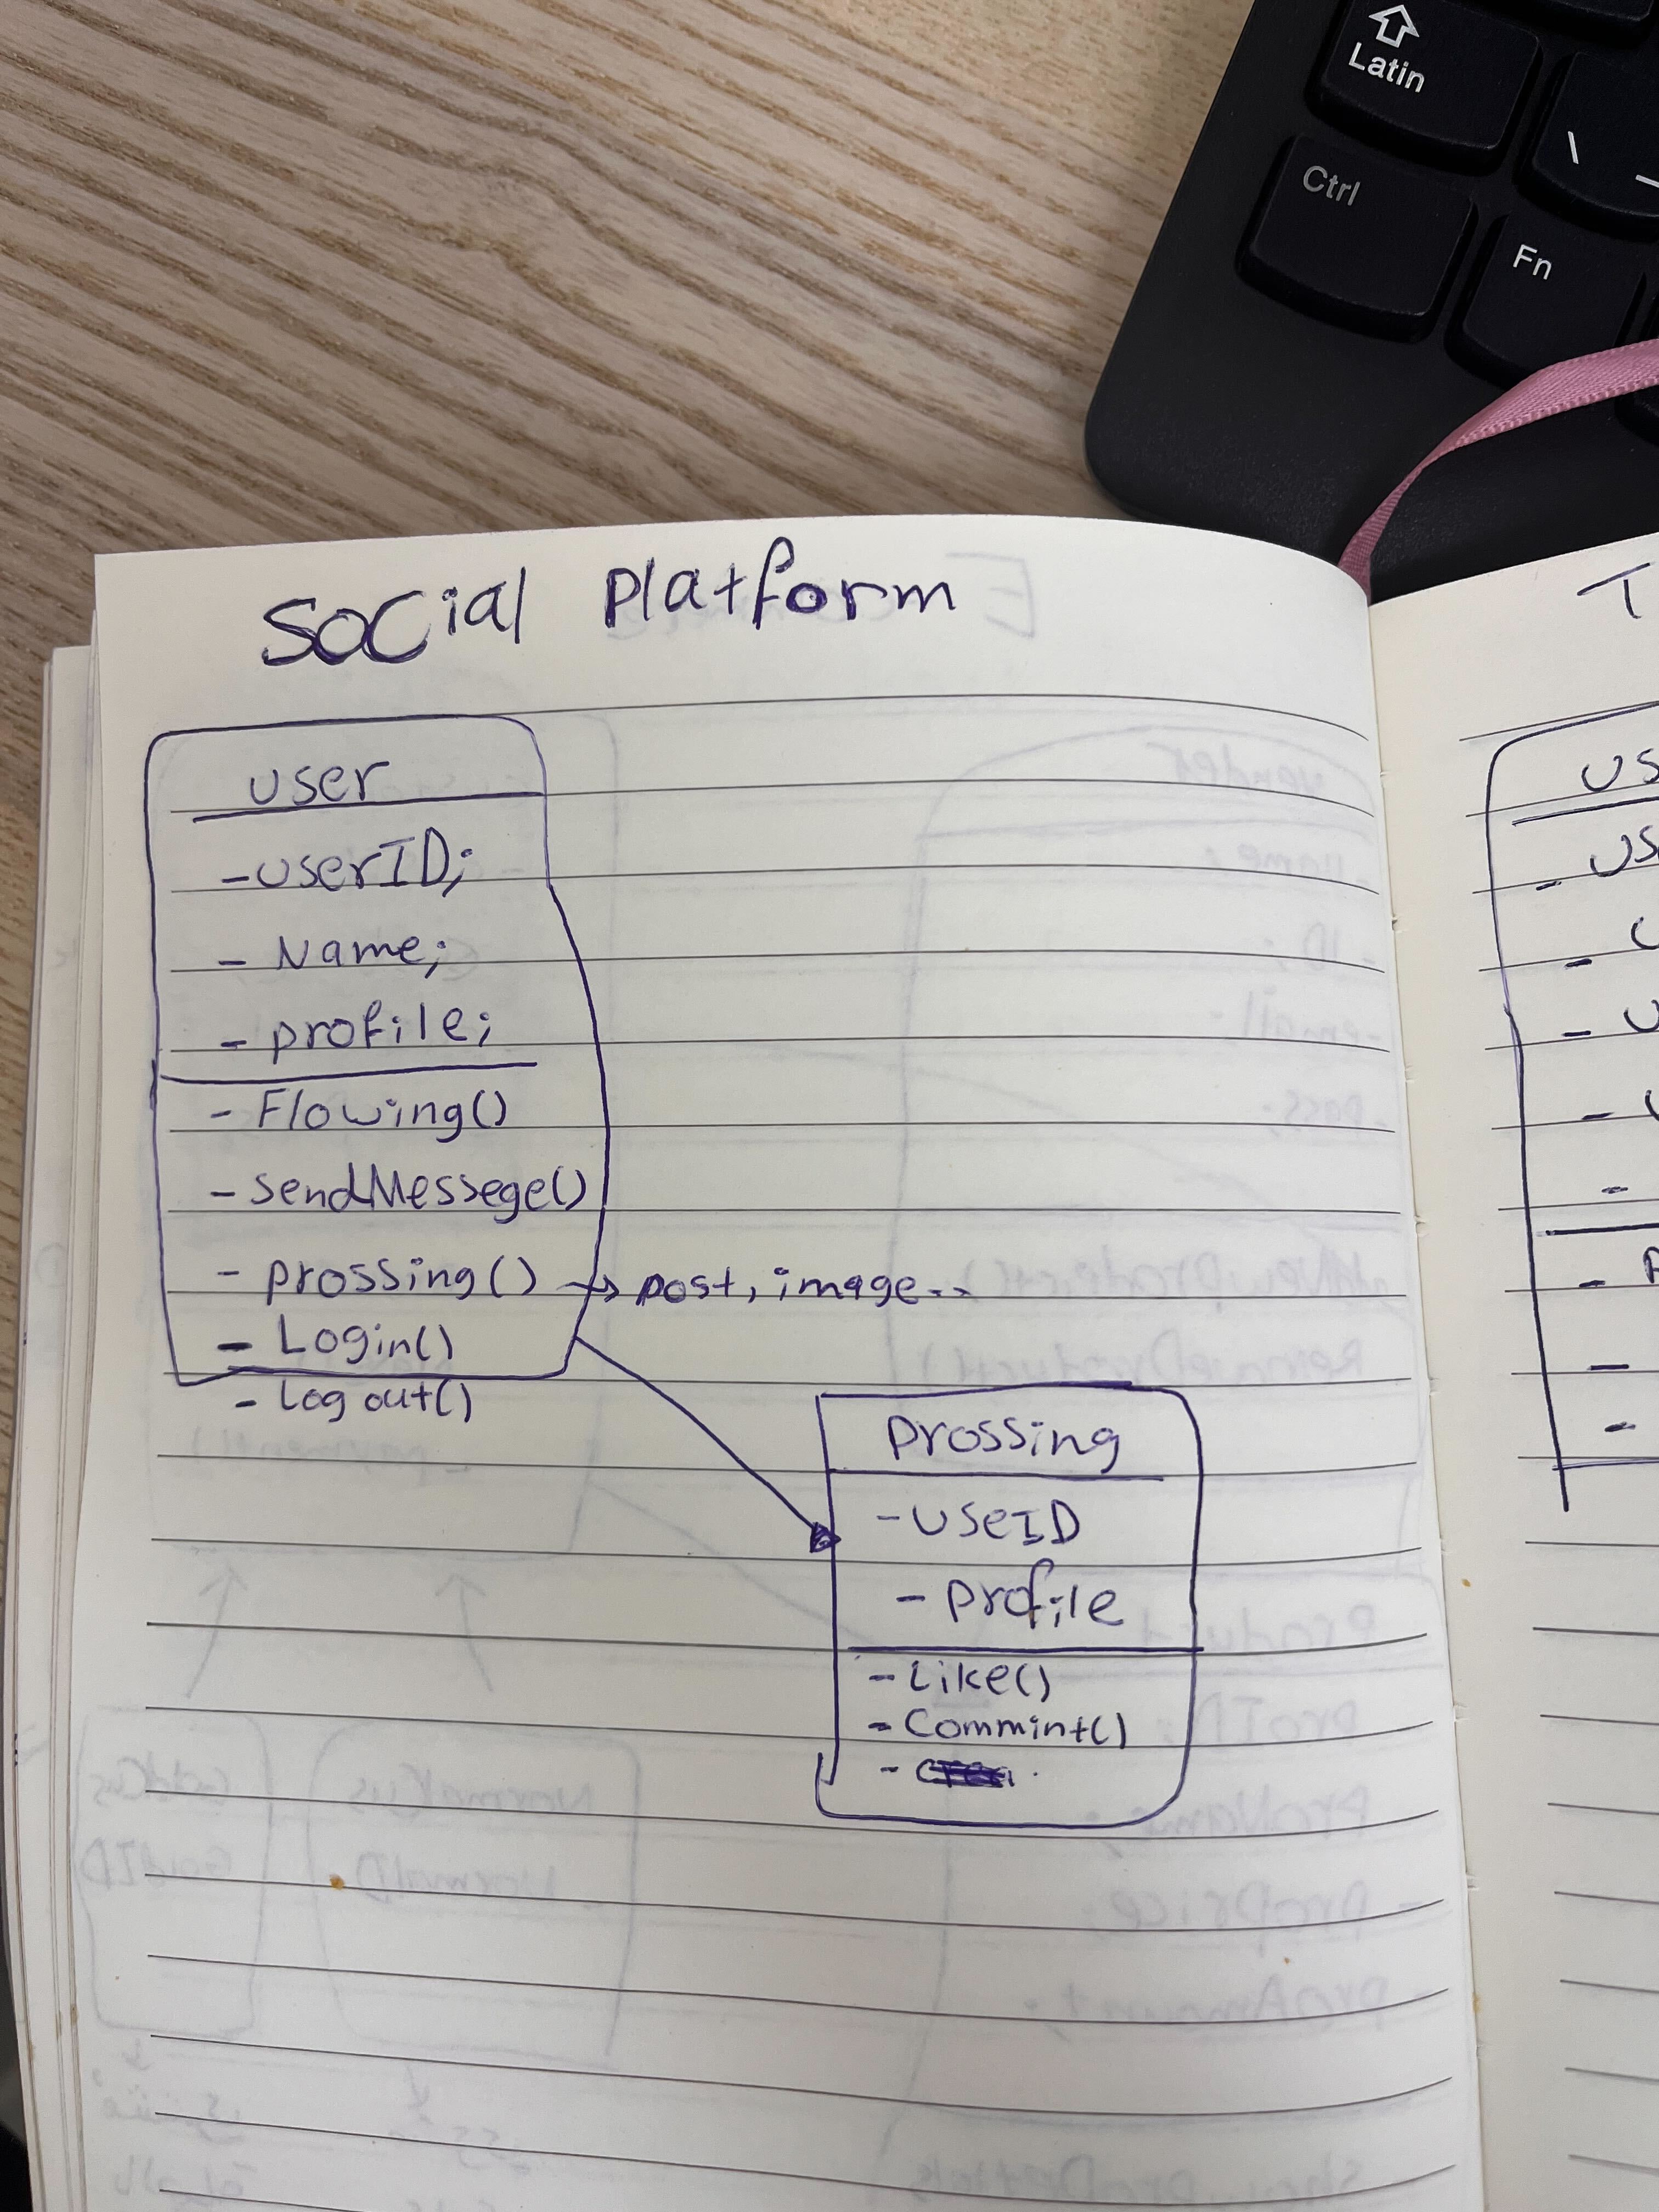 Latin
Ctrl
\
Fn
Social Platform
user
- userID;
- Name;
- profile;
- Flowing()
- sendMessege()
- prossing() → post, image..
- Login()
- Log out()
prossing
- UseID
- Profile
- Like()
- Commint()
T
US
- US